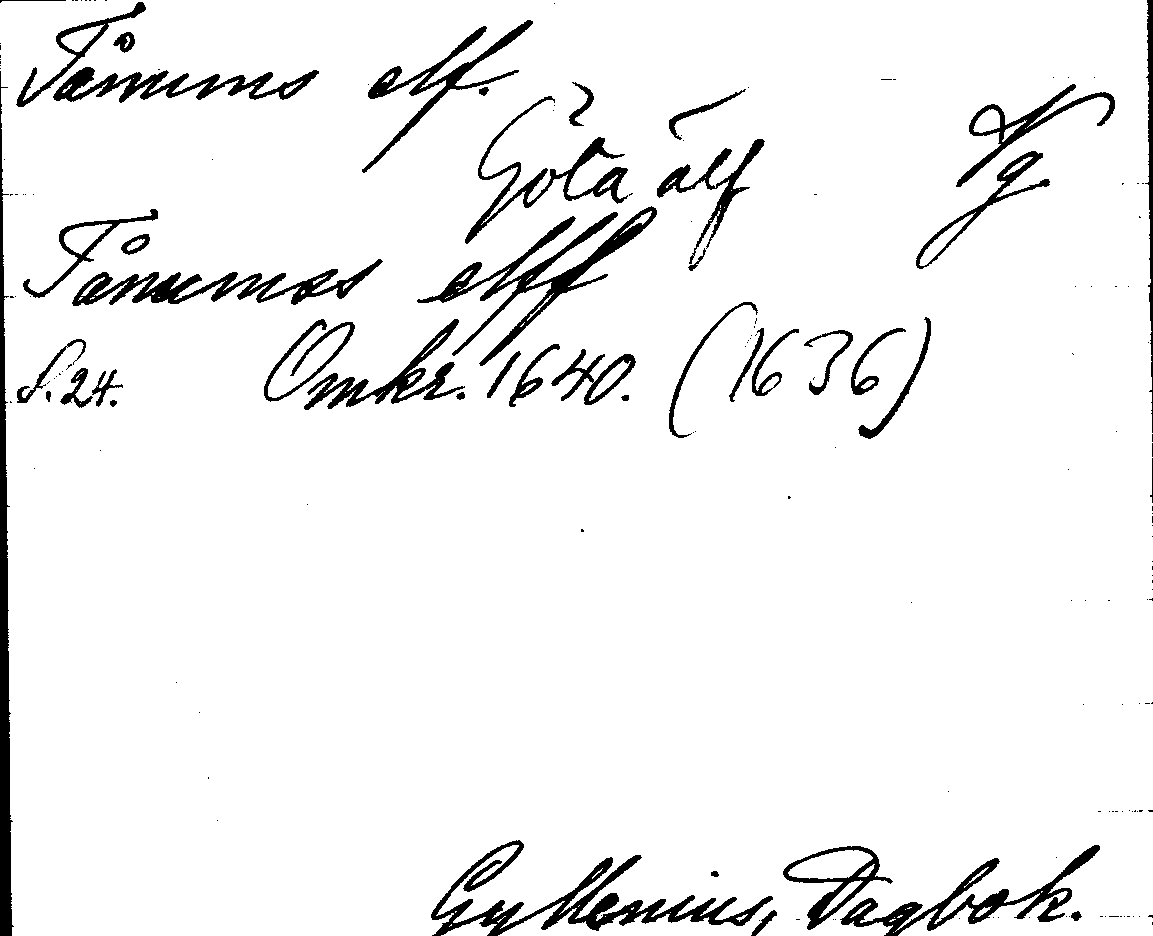 Tånums elf.
Göta älf Vg.
Tånumos elff
S. 24. Omkr. 1640. (1636)
Gyllenius, Dagbok.